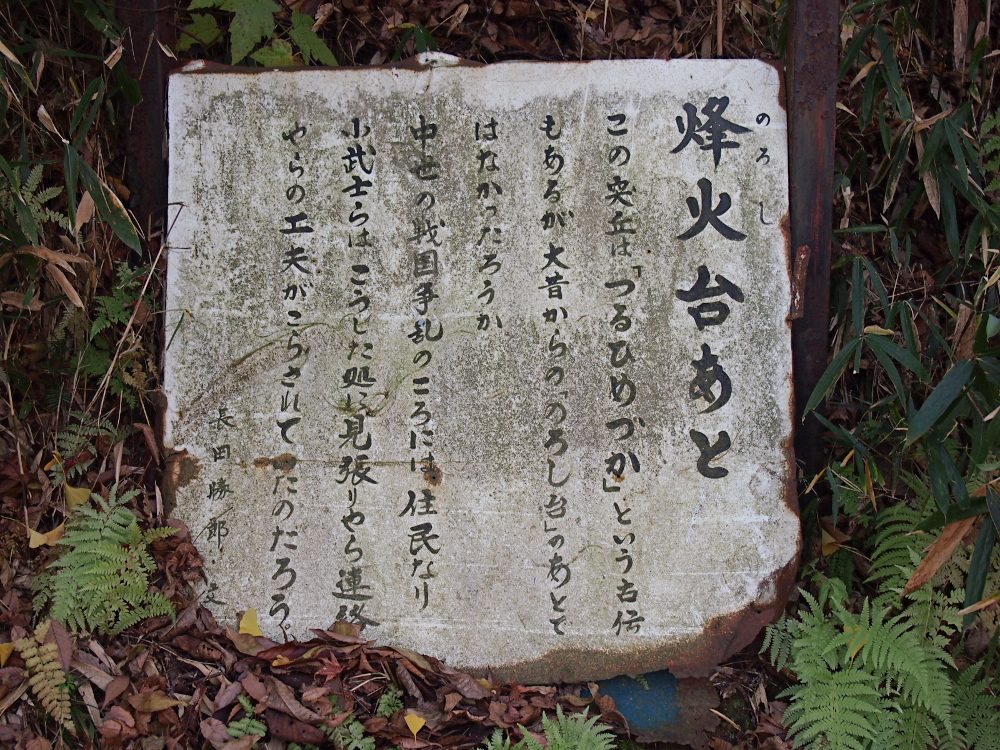 烽火台あと
のろし
この突丘は「つるひめづか」という古伝
もあるが大昔からの「のろし台」のあとで
はなかったろうか
中世の戦国争乱のころには住民なり
小武士らはこうした処に見張りやら連絡
やらの工夫がこらされていたのだろう。
長田勝郎・文